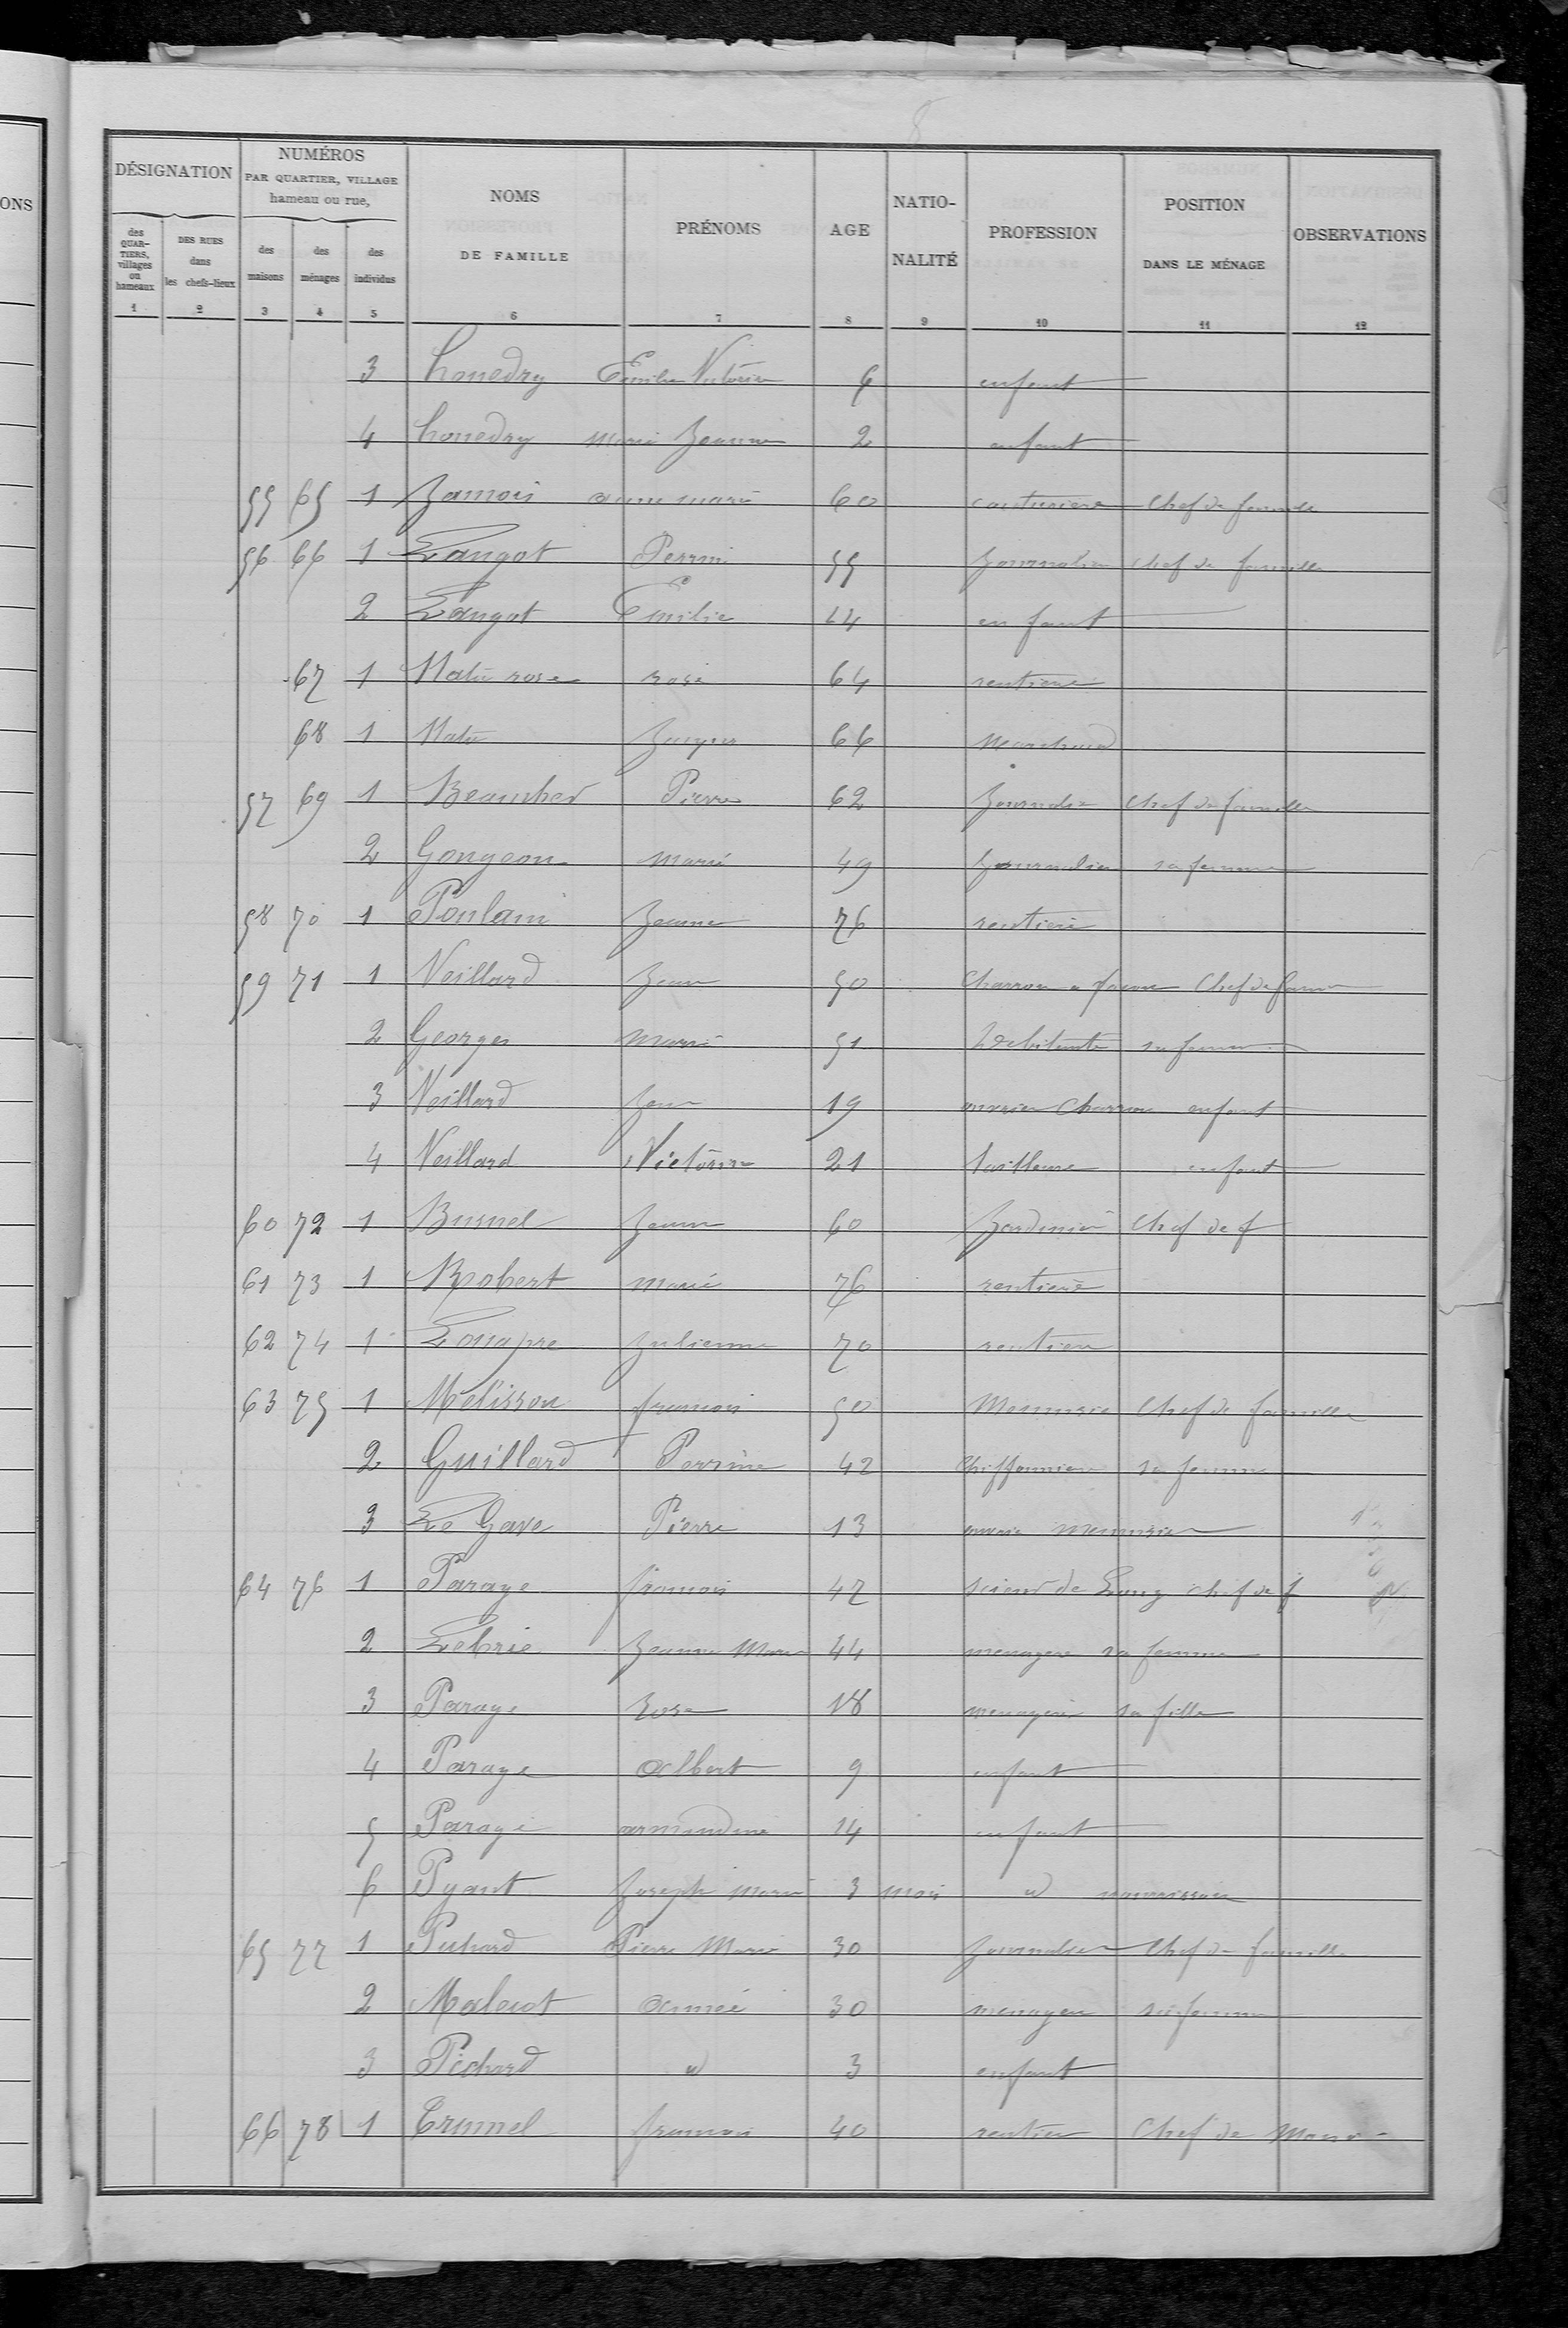 8
ONS
DÉSIGNATION
NUMÉROS
PAR QUARTIER, VILLAGE
hameau ou rue,
des QUARTIERS, villages ou hameaux
DES RUES dans les chefs-lieux
des maisons
des ménages
des individus
NOMS DE FAMILLE
PRÉNOMS
AGE
NATIONALITÉ
PROFESSION
POSITION DANS LE MÉNAGE
OBSERVATIONS
1 2 3 4 5 6 7 8 9 10 11 12
3 6 enfant
4 marie Jeanne 2 enfant
55 65 1 Jamois anne marie 60 couturiere Chef de famille
56 66 1 Langot Perrin 55 Journalier chef de famille
2 Langot Emilie 14 enfant
67 1 rose rose 64 rentiere
68 1 Jacques 66 marchand
57 69 1 Beaucher Pierre 62 Journalier chef de famille
2 Gougeon marie 49 Journaliere sa femme
58 70 1 Poulain Jeanne 76 rentiere
59 71 1 Veillard Jean 50 Charron a facon Chef de famille
2 Georges marie 51 Debitante sa femme
3 Veillard Jean 19 ouvrier Charron enfant
4 Veillard Victorine 21 tailleuse enfant
60 72 1 Busnel Jeanne 60 Jardiniere Chef de f
61 73 1 Robert marie 76 rentiere
62 74 1 Julienne 70 rentiere
63 75 1 Melisson francois 50 Menuisier Chef de famille
2 Guillard Perrine 42 chiffonniere sa femme
3 Le Gave Pierre 13 ouvrier menuisier
64 76 1 Parage francois 47 scieur de Long chef de f
2 Lebrie Jeanne Marie 44 menagere sa femme
3 Parage Rose 18 menagere sa fille
4 Parage Albert 9 enfant
5 Parage armandine 14 enfant
6 Pyant Joseph marie 3 mois nourrisson
65 77 1 Pierre Marie 30 Journalier Chef de famille
2 Malecot aimée 30 menagere sa femme
3 Pechard 3 enfant
66 78 1 francois 40 rentier Chef de